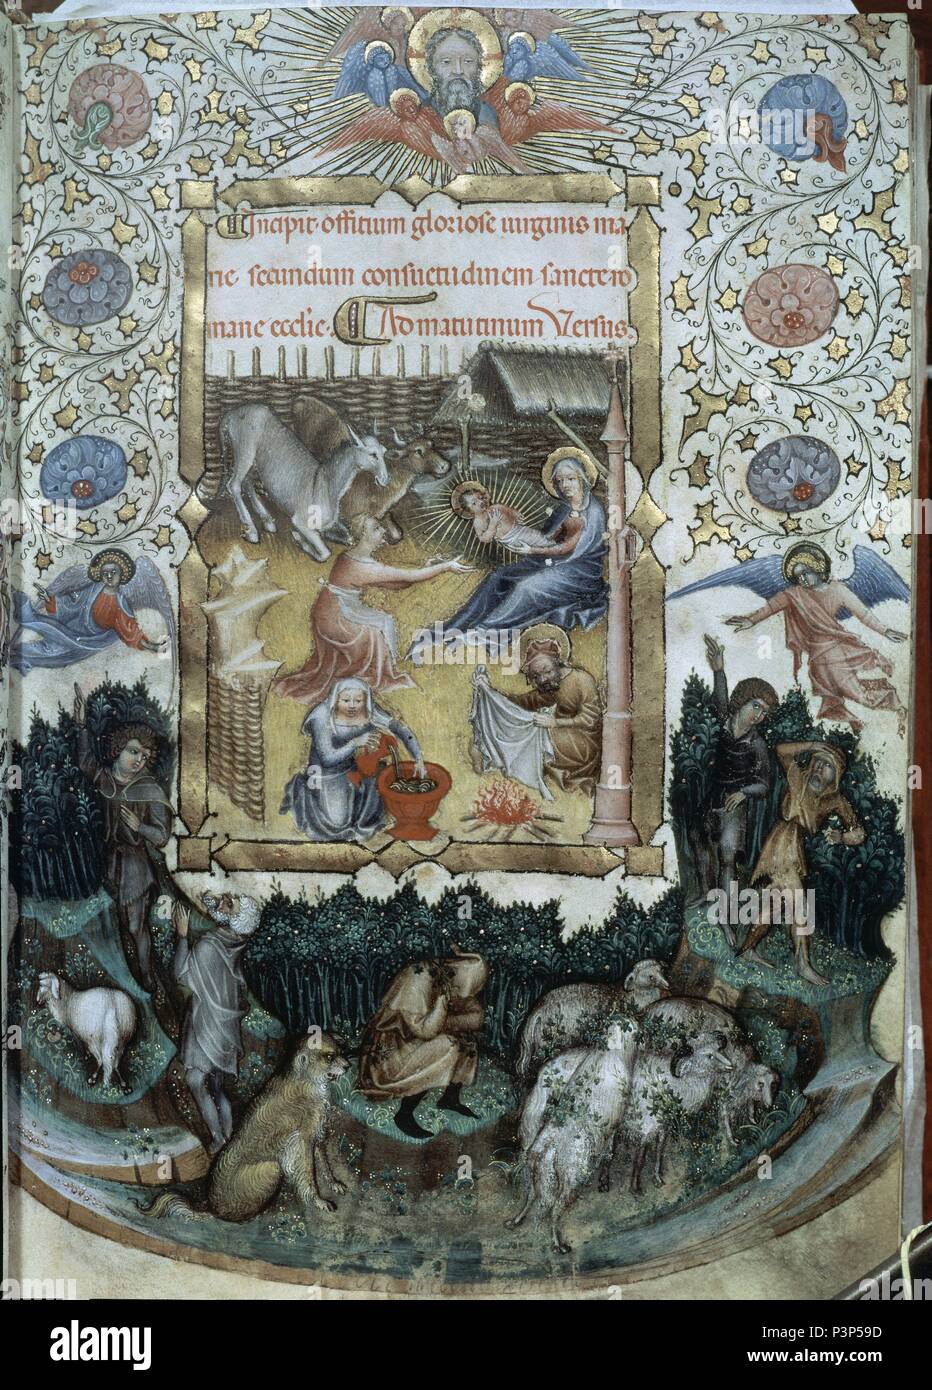 Incipit officium gloriose uirginis ma
rie secundum consuetudinem sancte ro
mane ecclie. Ad matutinum Versus.
alamy
www.alamy.com
Image ID: P3P59D